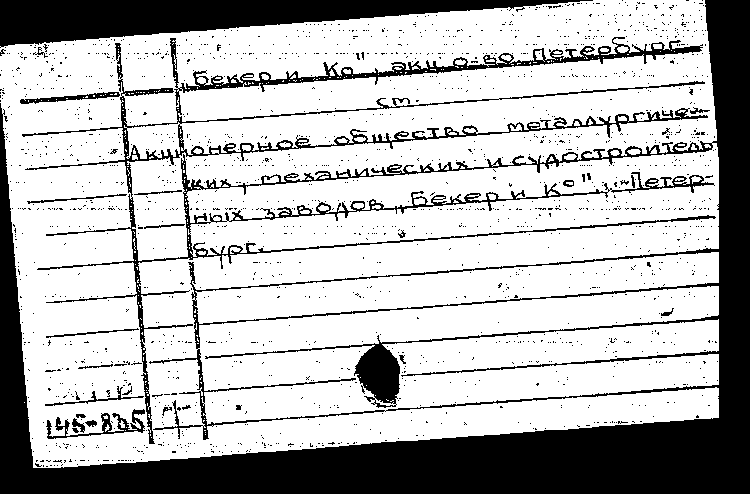 „Бекер и Ко", акц. о-во Петербург.
см.
Акционерное общество металлургичес-
ких, механических и судостроитель-
ных заводов „Бекер и Ко". Петер-
бург.